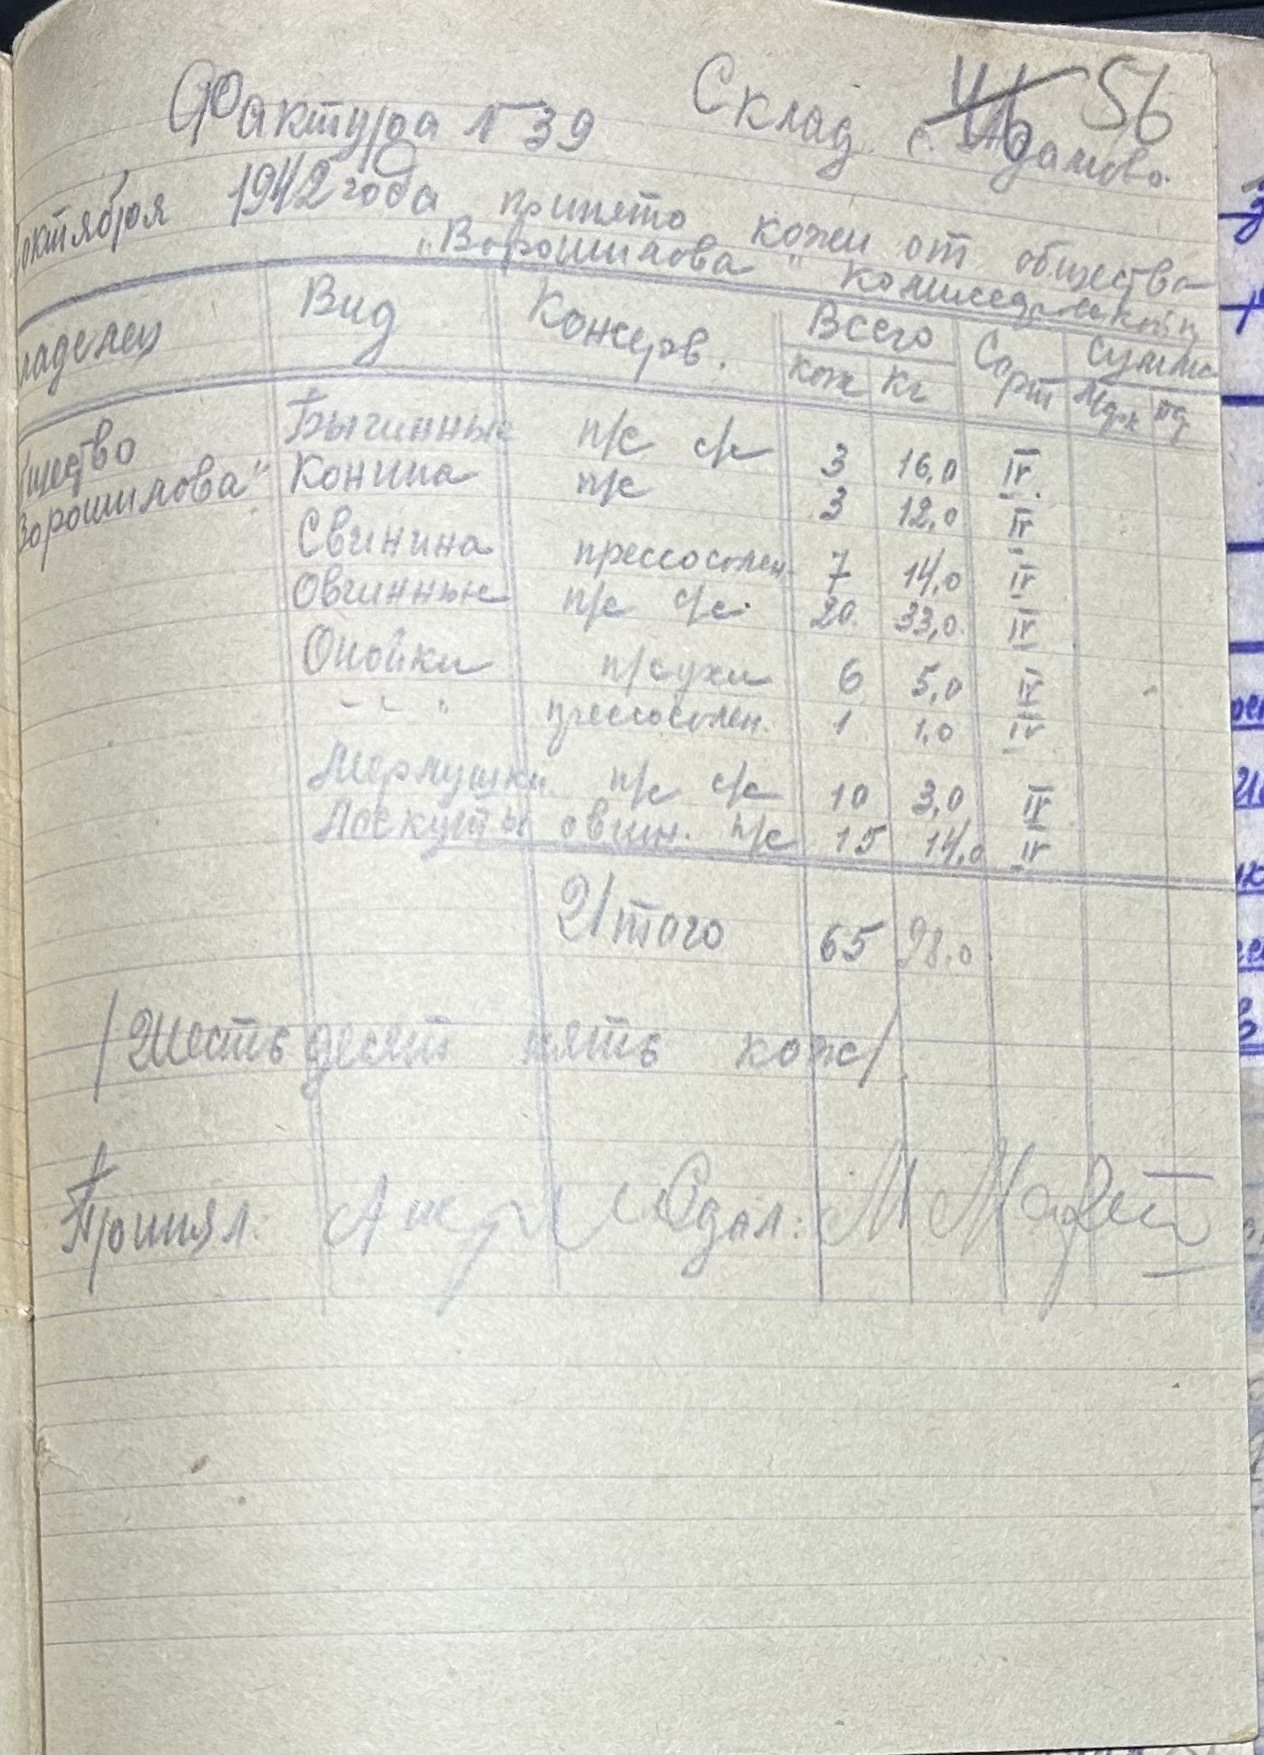 Фактура №39 Склад с. Адамово 56
октября 1942 года принято кожи от общества
"Ворошилова"
Владелец Вид Консерв. Всего Сорт Сумма
кож кг
Бычинные п/с с/с 3 16,0 IV
Общество Конина п/с 3 12,0 IV
Ворошилова" Свинина прессосолен. 7 14,0 IV
Овчинные п/с с/с. 20 33,0 IV
Опойки п/сухи 6 5,0 IV
- " - прессосолен. 1 1,0 IV
Мерлушки п/с с/с 10 3,0 IV
Лоскуты овчин. п/с 15 14,0 IV
Итого 65 98.0
/Шестьдесят пять кож/
Принял: Сдал: